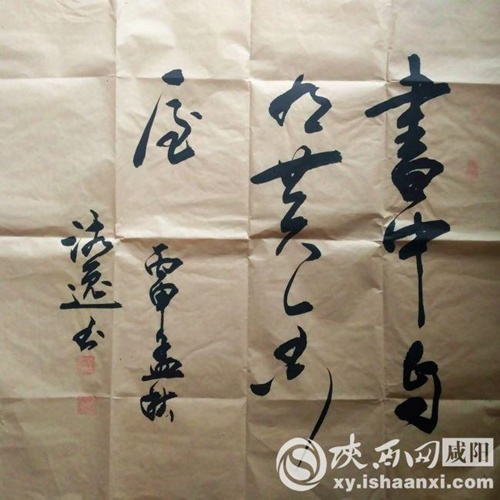 書中自
有黄金
屋
丙申孟秋
逸书
陕西网 咸阳
xy.ishaanxi.com